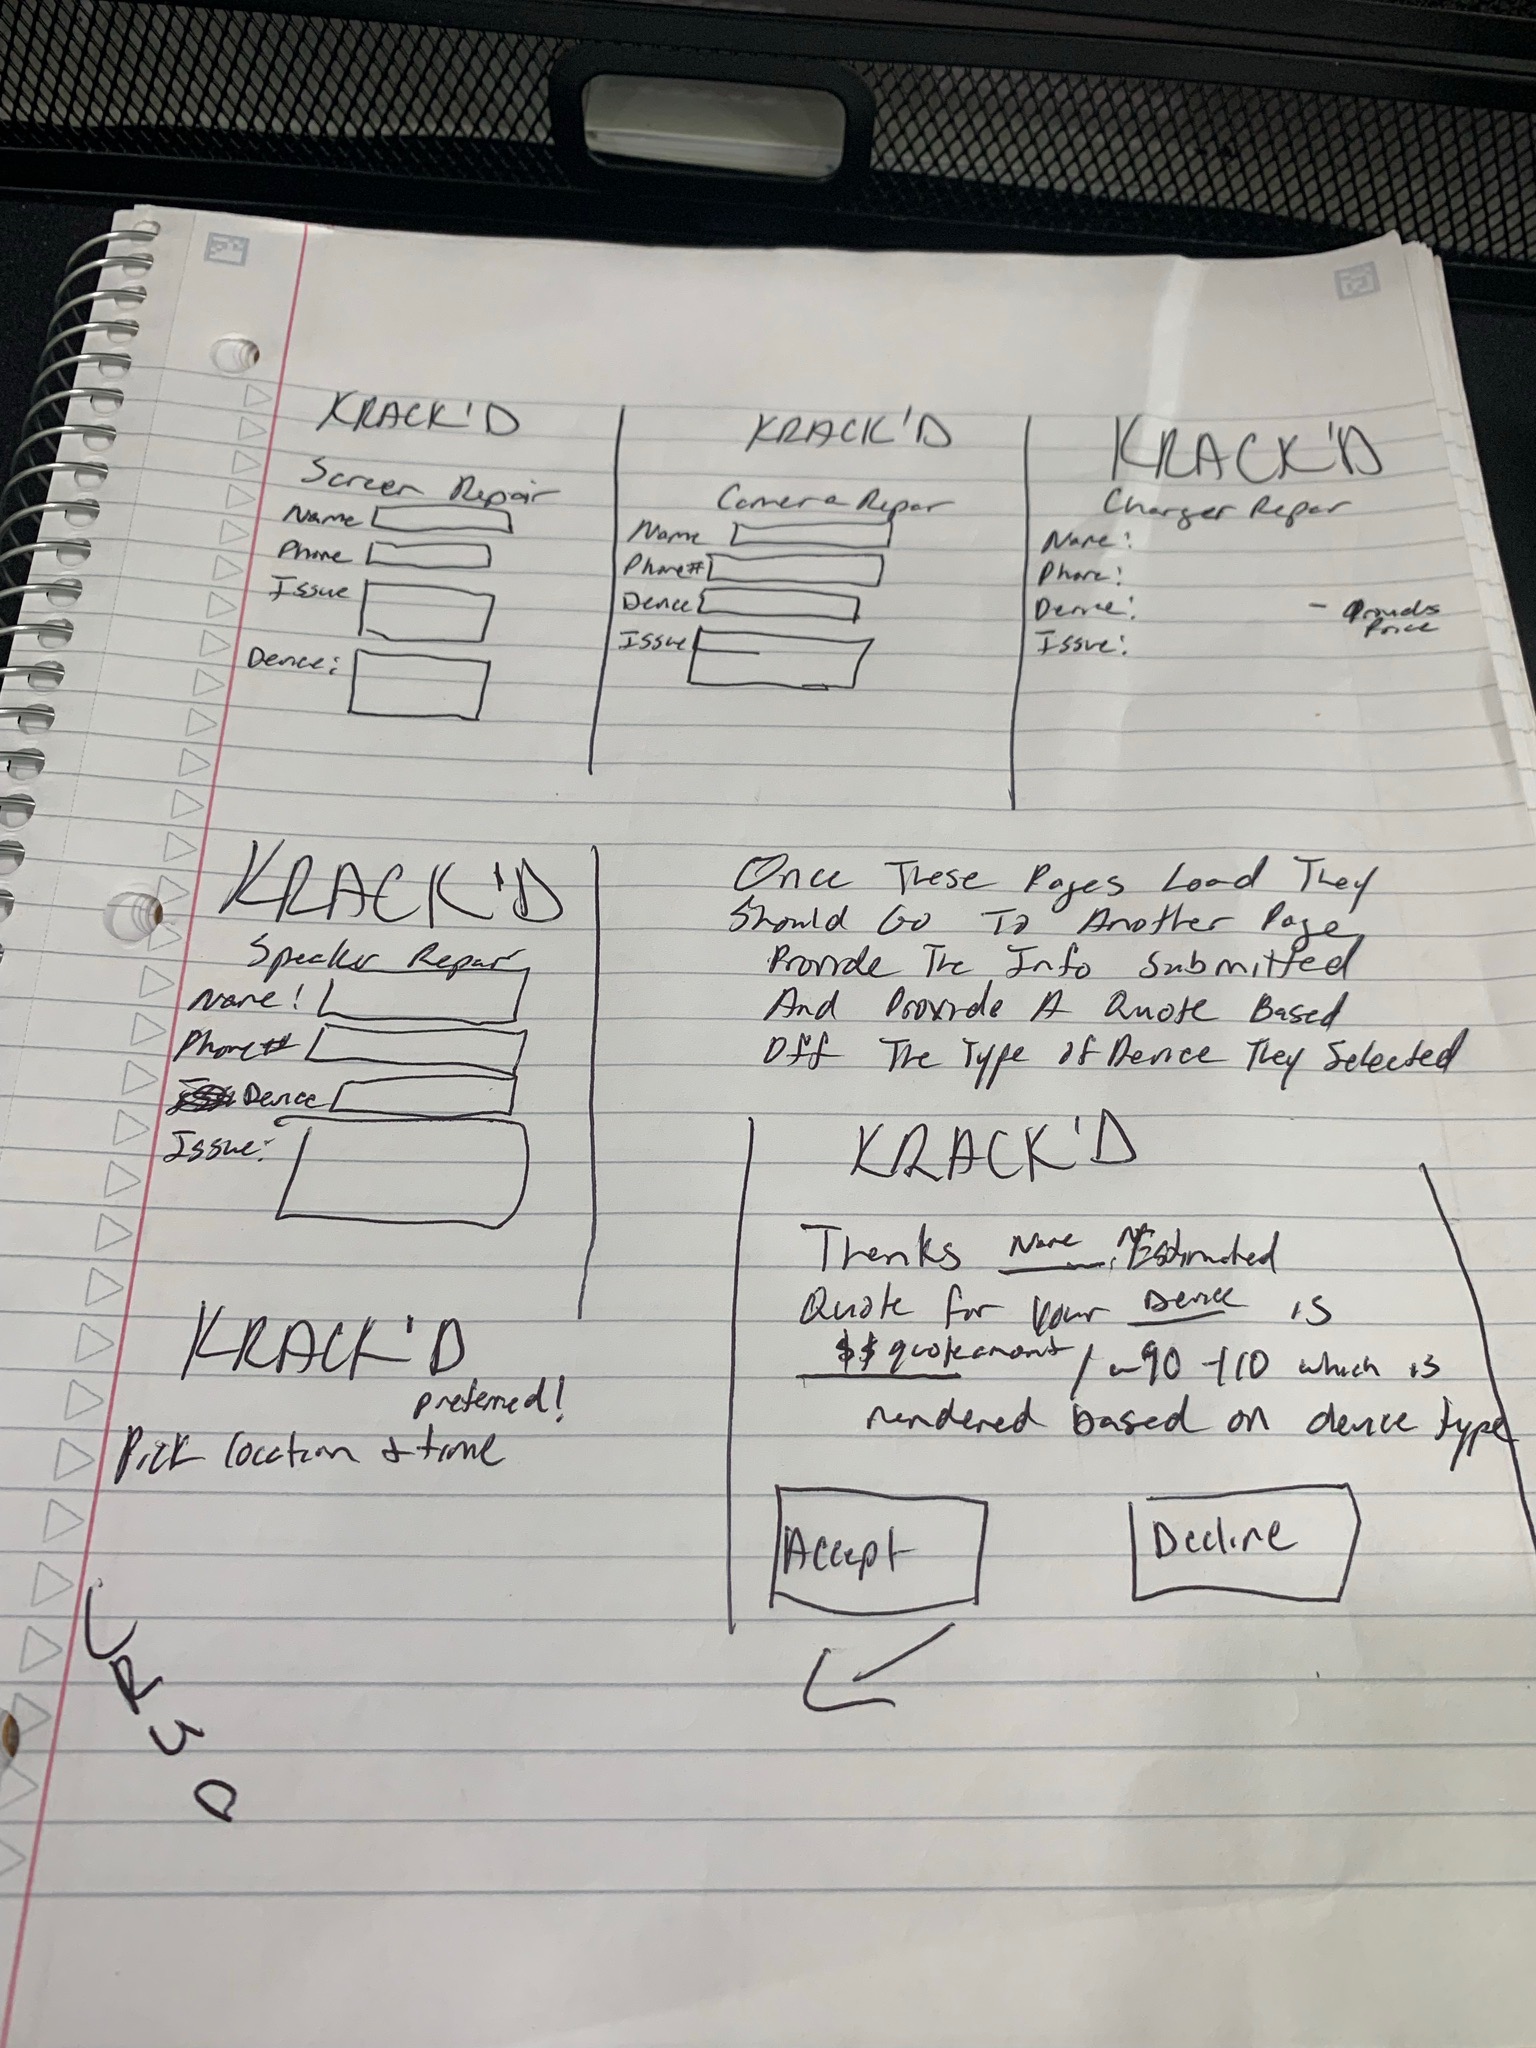 KRACK'D
Screen Repair
Name
Phone
Issue
Device:
KRACK'D
Camera Repar
Name
Phone#
Device
Issue
KRACK'D
Charger Repar
Name:
Phone:
Device:
- Provides
Price
Issue:
KRACK'D
Speaker Repar
Name:
Phone#
Device
Issue:
Once These Pages Load They
Should Go To Another Page
Provide The Info Submitted
And Provide A Quote Based
Off The Type of Device They Selected
KRACK'D
Thanks Name, Estimated
Quote for your Device is
$$ quote amount / 90-110 which is
rendered based on device type
Accept
Decline
KRACK'D
preferred!
Pick location & time